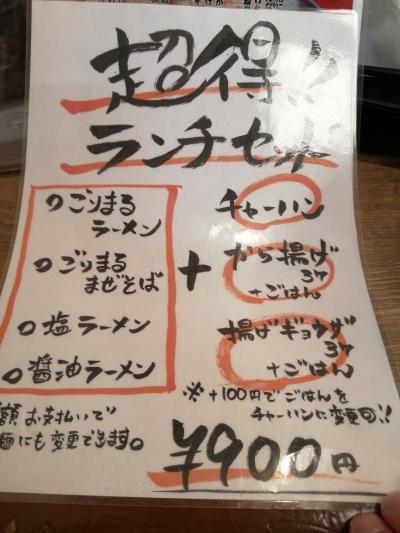 超得!!
ランチセット
○ごりまる
ラーメン
○ごりまる
まぜそば
○塩ラーメン
○醤油ラーメン
+
チャーハン
から揚げ
3ケ
+ごはん
揚げギョウザ
3ケ
+ごはん
※+100円でごはんを
チャーハンに変更可!!
額お支払いで
麺にも変更できます。
¥900円